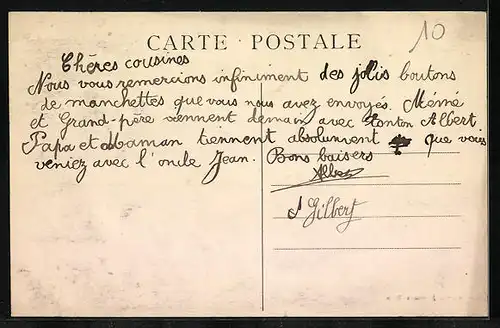 10
CARTE POSTALE
Chères cousines
Nous vous remercions infiniment des jolis boutons
de manchettes que vous nous avez envoyés. Mémé
et Grand-père viennent demain avec Tonton Albert
Papa et Maman tiennent absolument que vous
veniez avec l'oncle Jean. Bons baisers
Albert
et Gilbert